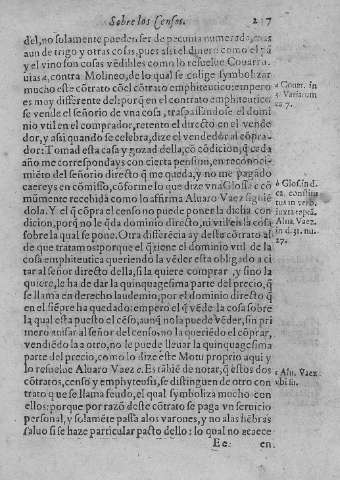 Sobre los Censos. 217
del, no solamente pueden ser de pecunia numerada, mas
aun de trigo y otras cosas, pues assi el dinero como el pã
y el vino son cosas vẽdibles como lo resuelue Couarru-
uias a, contra Molineo, de lo qual se colige symbolizar
a Couar. in
mucho este cõtrato cõ el cõtrato emphiteutico: empero
3. Variarum
es muy diferente del: porq̃ en el contrato emphiteutico
ca. 7.
se vende el señorio de vna cosa, traspassandose el domi
nio vtil en el comprador, retento el directo en el vende
dor, y assi quando se celebra, dize el vendedor al cõpra-
dor: Tomad esta casa y gozad della, cõ cõdicion, q̃ cada
año me correspondays con cierta pension, en reconoci-
miẽto del señorio directo q̃ me queda, y no me pagãdo
caereys en cómisso, cõforme lo que dize vna Glossa b cõ
b Glos. in d.
múmente recebida como lo affirma Aluaro Vaez siguiẽ
ca. constitu
dola. Y el q̃ cõpra el censo no puede poner la dicha con
tus in verb.
dicion, porq̃ no le q̃da dominio directo, ni vtil en la cosa
iuxta
sobre la qual se pone. Otra differẽcia ay deste cõtrato al
Aluа. Vaez.
de que tratamos: porque el q̃ tiene el dominio vtil de la
in d. 31. nu.
cosa emphiteutica queriendo la vẽder esta obligado a ci
27.
tar al señor directo della, si la quiere comprar, y sino la
quiere, le ha de dar la quinquagesima parte del precio, q̃
se llama en derecho laudemio; por el dominio directo q̃
en el siẽpre ha quedado: empero el q̃ vẽde la cosa sobre
la qual esta puesto el cẽso, aunq̃ no la puede vẽder, sin pri
mero auisar al señor del censo, no la queriẽdo el cõprar,
vendiẽdola a otro, no le puede lleuar la quinquagesima
parte del precio, como lo dize este Motu proprio aqui y
lo resuelue Aluaro Vaez c. Es tãbiẽ de notar, q̃ estos dos
c Alu. Vaez
cõtratos, censo y emphyteusis, se distinguen de otro con
vbi su.
trato que se llama feudo, el qual symboliza mucho con
ellos: porque por razõ deste cõtrato se paga vn seruicio
personal, y solamẽte passa a los varones, y no a las hẽbras
saluo si se haze particular pacto dello: lo qual no acaece
Ee en